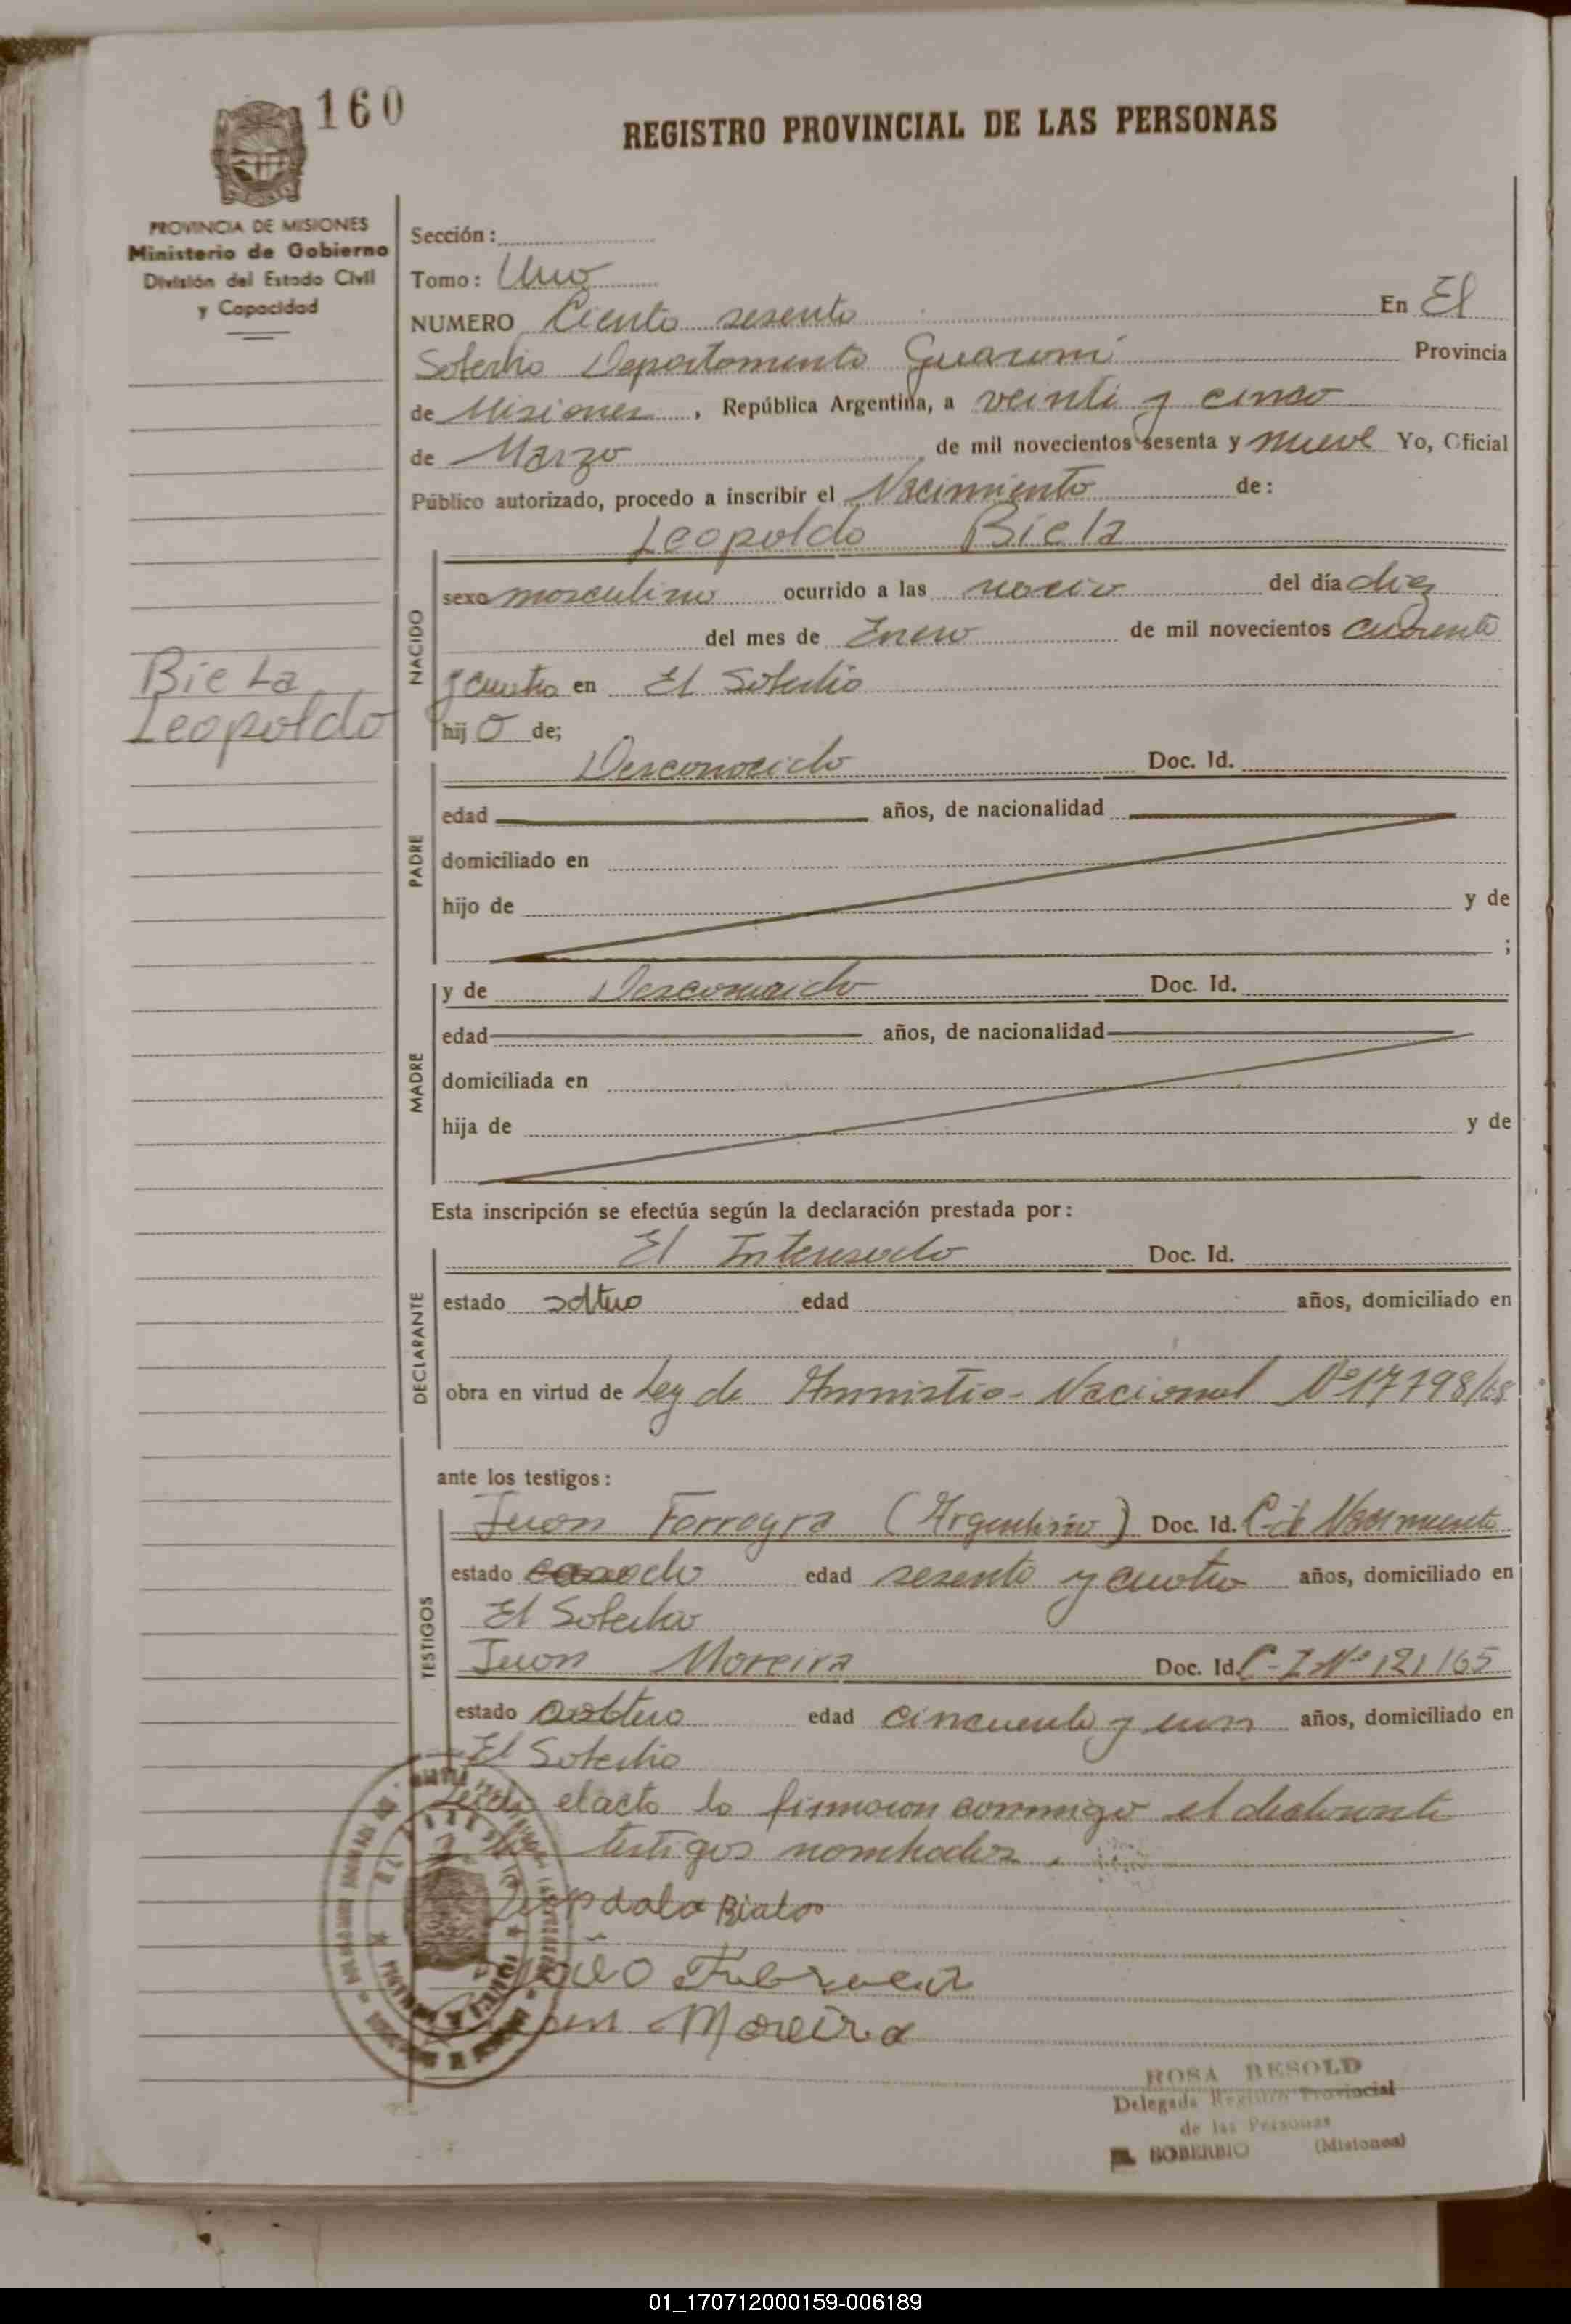 160
REGISTRO PROVINCIAL DE LAS PERSONAS
PROVINCIA DE MISIONES
Ministerio de Gobierno
División del Estado Civil
y Capacidad
Sección:
Tomo: Uno
NUMERO Ciento sesenta En El
Soberbio Departamento Guaraní Provincia
de Misiones, República Argentina, a veinti y cinco
de Marzo de mil novecientos sesenta y nueve Yo, Oficial
Público autorizado, procedo a inscribir el Nacimiento de:
Leopoldo Biela
NACIDO
sexo masculino ocurrido a las del día diez
del mes de Enero de mil novecientos cuarenta
y cuatro en El Soberbio
hijo de;
Biela
Leopoldo
PADRE
Desconocido Doc. Id.
edad años, de nacionalidad
domiciliado en
hijo de y de
;
MADRE
y de Desconocido Doc. Id.
edad años, de nacionalidad
domiciliada en
hija de y de
Esta inscripción se efectúa según la declaración prestada por:
DECLARANTE
El Interesado Doc. Id.
estado soltero edad años, domiciliado en
obra en virtud de Ley de Amnistia - Nacional Nº 17798/68
ante los testigos:
TESTIGOS
Juan Ferreyra (Argentino) Doc. Id. Nacimiento
estado casado edad sesenta y cuatro años, domiciliado en
El Soberbio
Juan Moreira Doc. Id. C-I Nº 121165
estado soltero edad cincuenta y un años, domiciliado en
El Soberbio
Leido el acto lo firmaron conmigo el declarante
testigos nombrados.
Moreira
ROSA BESOLD
Delegada Registro Provincial
de las Personas
EL SOBERBIO (Misiones)
01_170712000159-006189